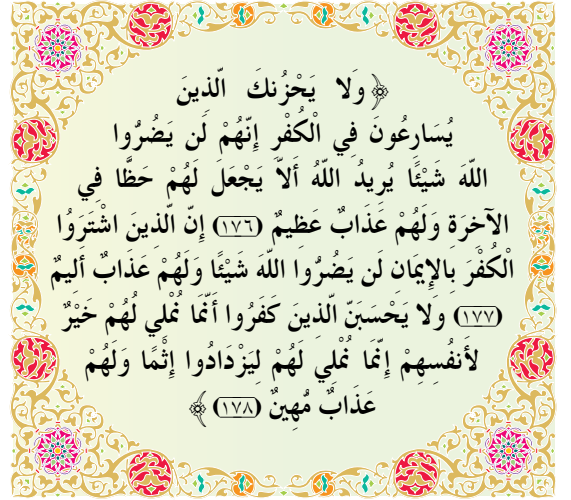 ﴿وَلا يَحْزُنكَ الّذِينَ
يُسَارِعُونَ فِي الْكُفْرِ إِنّهُمْ لَن يَضُرُّوا
اللّهَ شَيْئًا يُرِيدُ اللّهُ ألاّ يَجْعَلَ لَهُمْ حَظًّا فِي
الآخِرَةِ وَلَهُمْ عَذَابٌ عَظِيمٌ (١٧٦) إِنّ الّذِينَ اشْتَرَوُا
الْكُفْرَ بالإِيمَانِ لَن يَضُرُّوا اللّهَ شيْئًا وَلَهُمْ عَذَابٌ أَلِيمٌ
(١٧٧) وَلا يَحْسبَنّ الّذِينَ كَفَرُوا أَنّمَا نُمْلِي لَهُمْ خَيْرٌ
لأَنفُسِهِمْ إِنّمَا نُمْلِي لَهُمْ لِيَزْدَادُوا إِثْمًا وَلَهُمْ
عَذَابٌ مُّهِينٌ (١٧٨)﴾